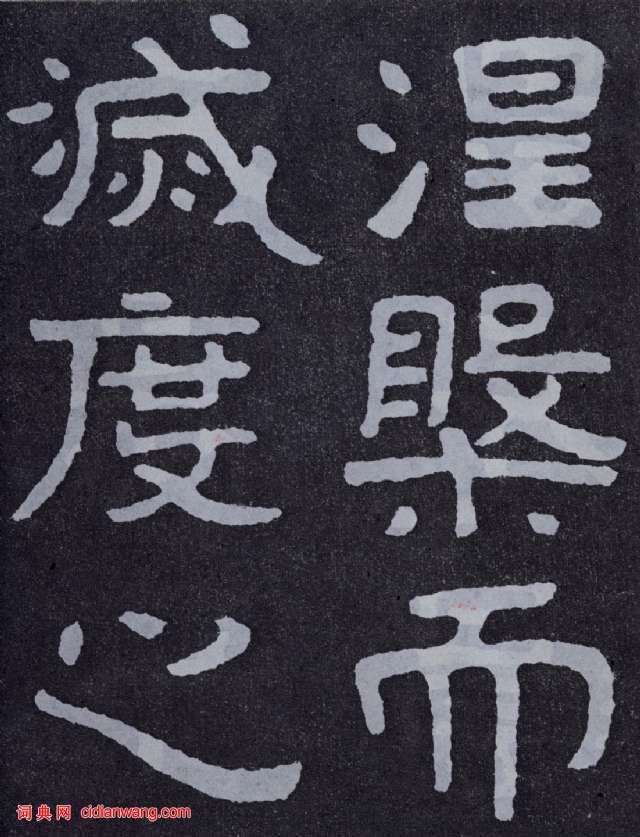 涅槃而
滅度之
词典网 cidianwang.com